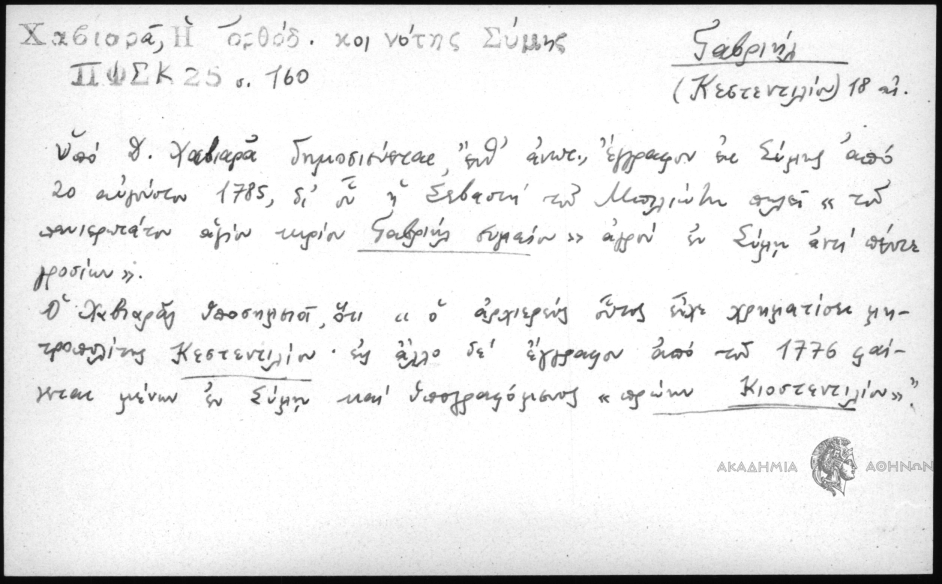 Χαβιαρᾶ, Ἡ ὀρθόδ. κοινότης Σύμης
ΠΦΣΚ 25 σ. 160
Γαβριήλ
(Κεστεντιλίου) 18 αἰ.
Ὑπό Δ. Χαβιαρᾶ δημοσιεύεται ἔνθ' ἀνωτ., ἔγγραφον ἐκ Σύμης ἀπό
20 αὐγούστου 1785, δι' οὗ ἡ Σεβαστή τοῦ πωλεῖ « τοῦ
πανιερωτάτου ἁγίου κυρίου Γαβριήλ συμαίου » ἀγρόν ἐν Σύμῃ ἀντί πέντε
γροσίων».
Ὁ Χαβιαρᾶς ὑποσημειοῖ, ὅτι « ὁ ἀρχιερεύς οὗτος εἶχε χρηματίσει μη-
τροπολίτης Κεστεντιλίου· εἰς ἄλλο δέ ἔγγραφον ἀπό τοῦ 1776 φαί-
νεται μένων ἐν Σύμῃ καί ὑπογραφόμενος « πρώην Κιοστεντιλίου».
ΑΚΑΔΗΜΙΑ ΑΘΗΝΩΝ